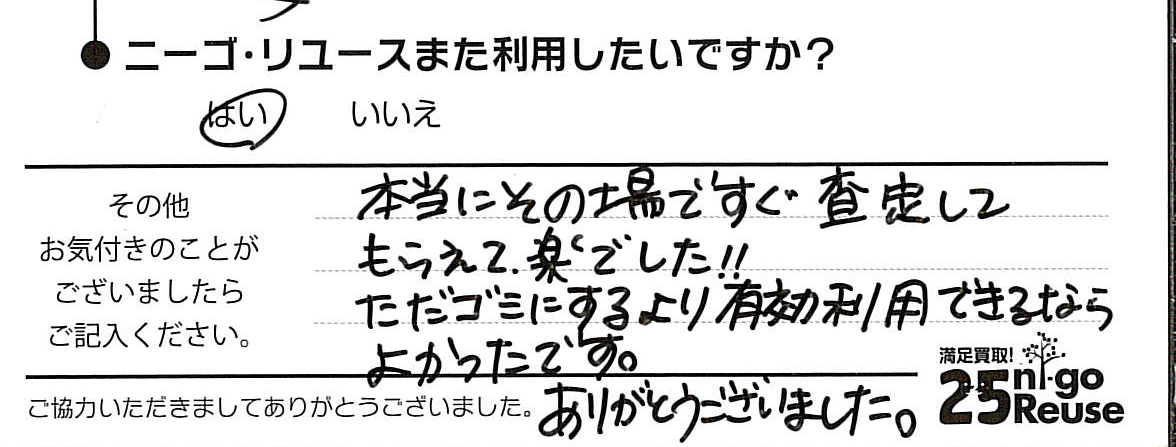 ●ニーゴ・リユースまた利用したいですか？
はい いいえ
その他
お気付きのことが
ございましたら
ご記入ください。
本当にその場ですぐ査定して
もらえて、楽でした!!
ただゴミにするより有効利用できるなら
よかったです。
ありがとうございました。
ご協力いただきましてありがとうございました。
満足買取!
25 ni-go
Reuse